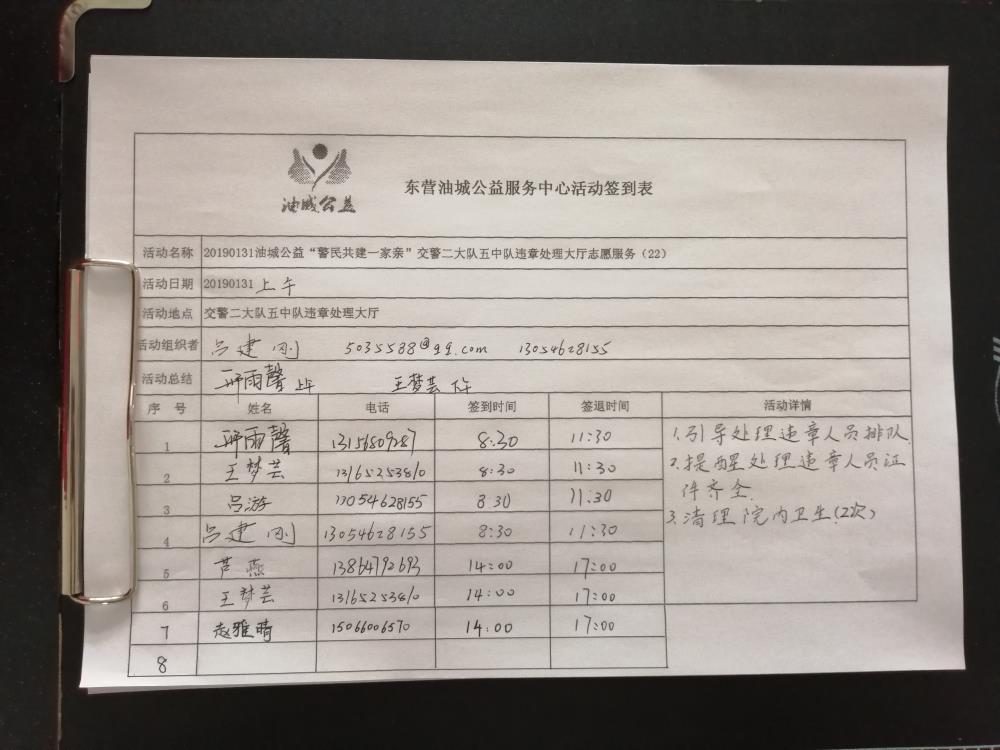 油城公益
东营油城公益服务中心活动签到表
活动名称 20190131油城公益“警民共建一家亲”交警二大队五中队违章处理大厅志愿服务（22）
活动日期 20190131 上午
活动地点 交警二大队五中队违章处理大厅
活动组织者 吕建刚 5035588@qq.com 13054628155
活动总结 邢雨馨 上午 王梦芸 下午
序 号 姓名 电话 签到时间 签退时间 活动详情
1 邢雨馨 13156809287 8:30 11:30 1.引导处理违章人员排队
2 王梦芸 13165253810 8:30 11:30 2.提醒处理违章人员证
件齐全.
3 吕游 13054628155 8:30 11:30 3.清理院内卫生(2次)
4 吕建刚 13054628155 8:30 11:30
5 芦燕 13864792693 14:00 17:00
6 王梦芸 13165253810 14:00 17:00
7 赵雅晴 15066006570 14:00 17:00
8